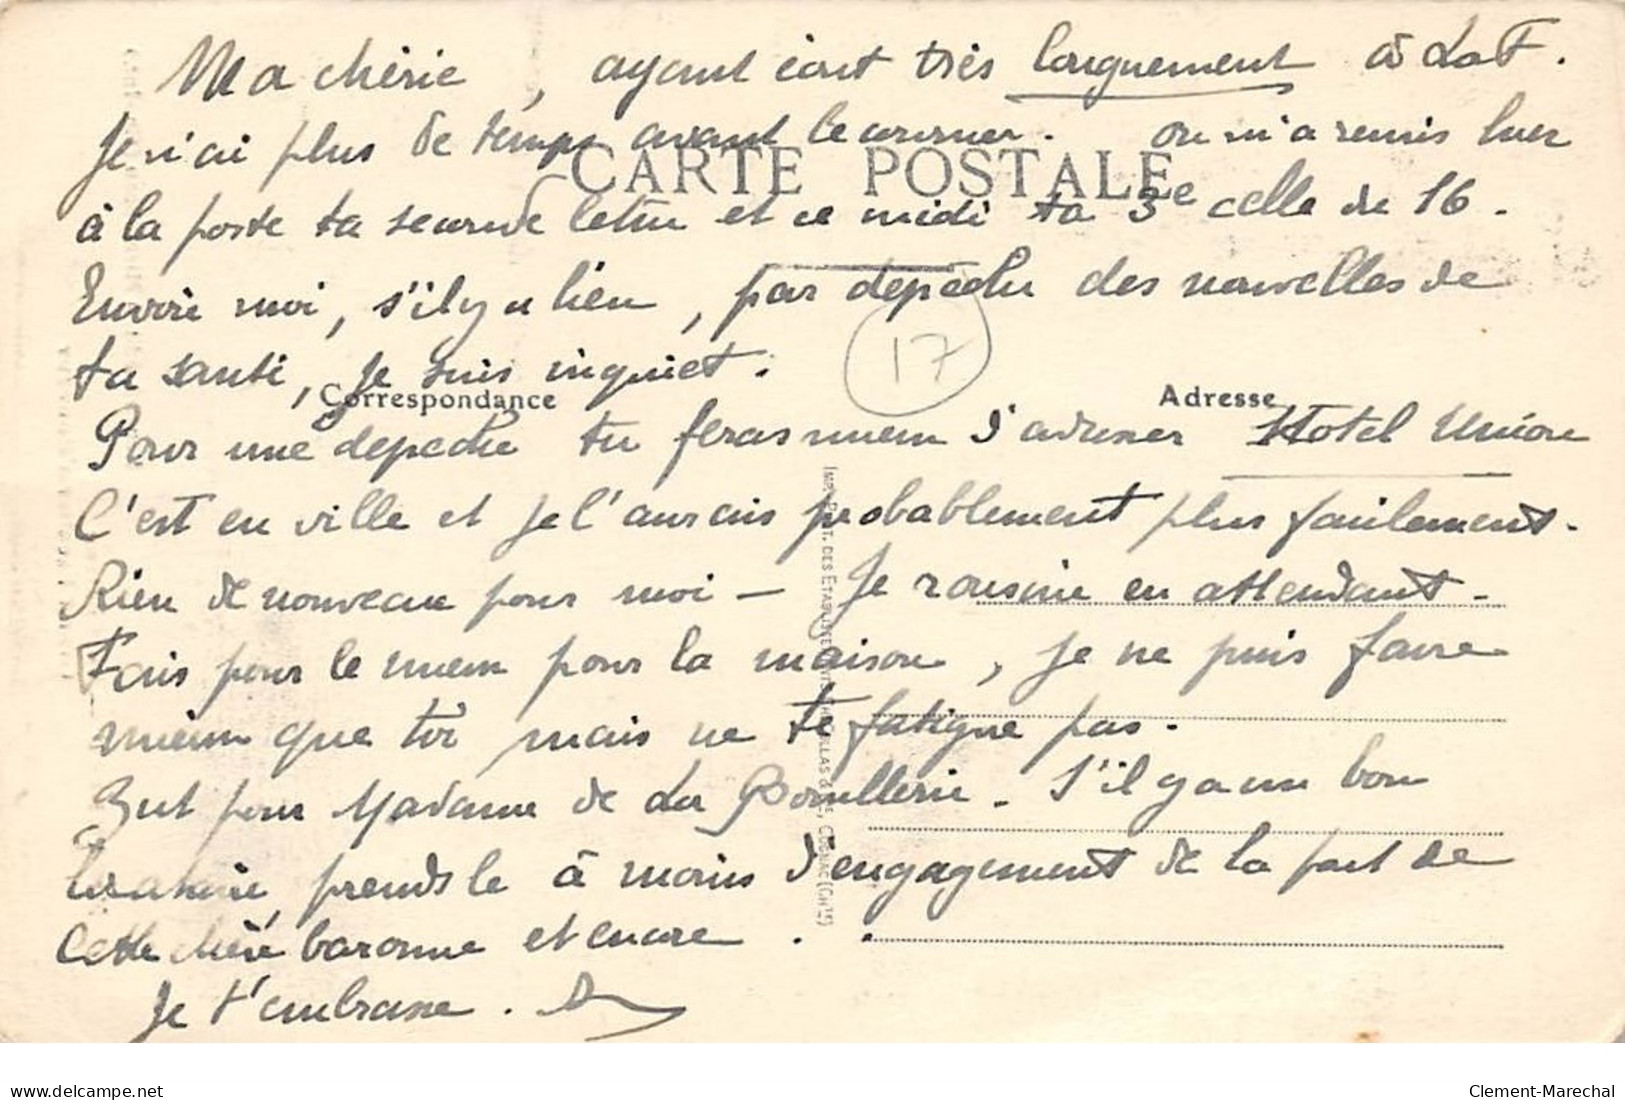 Ma chérie, ayant écrit très longuement à La F.
Je n'ai plus de temps avant le courrier. On m'a remis hier
CARTE POSTALE
à la poste ta seconde lettre et ce midi ta 3e celle du 16.
Envoie moi, s'il y a lieu, par depêche des nouvelles de
ta santé, je suis inquiet.
17
Correspondance
Adresse
Pour une depeche tu feras mieux d'adresser Hotel Union
C'est en ville et je l'aurais probablement plus facilement.
Rien de nouveau pour moi — Je rousine en attendant.
Fais pour le mieux pour la maison, je ne puis faire
mieux que toi mais ne te fatigue pas.
Zut pour Madame de La Bouillerie. S'il y a un bon
locataire, prends le à moins d'engagement de la part de
cette chère baronne et encore..
Je t'embrasse.
delcampe.net
Clement-Marechal